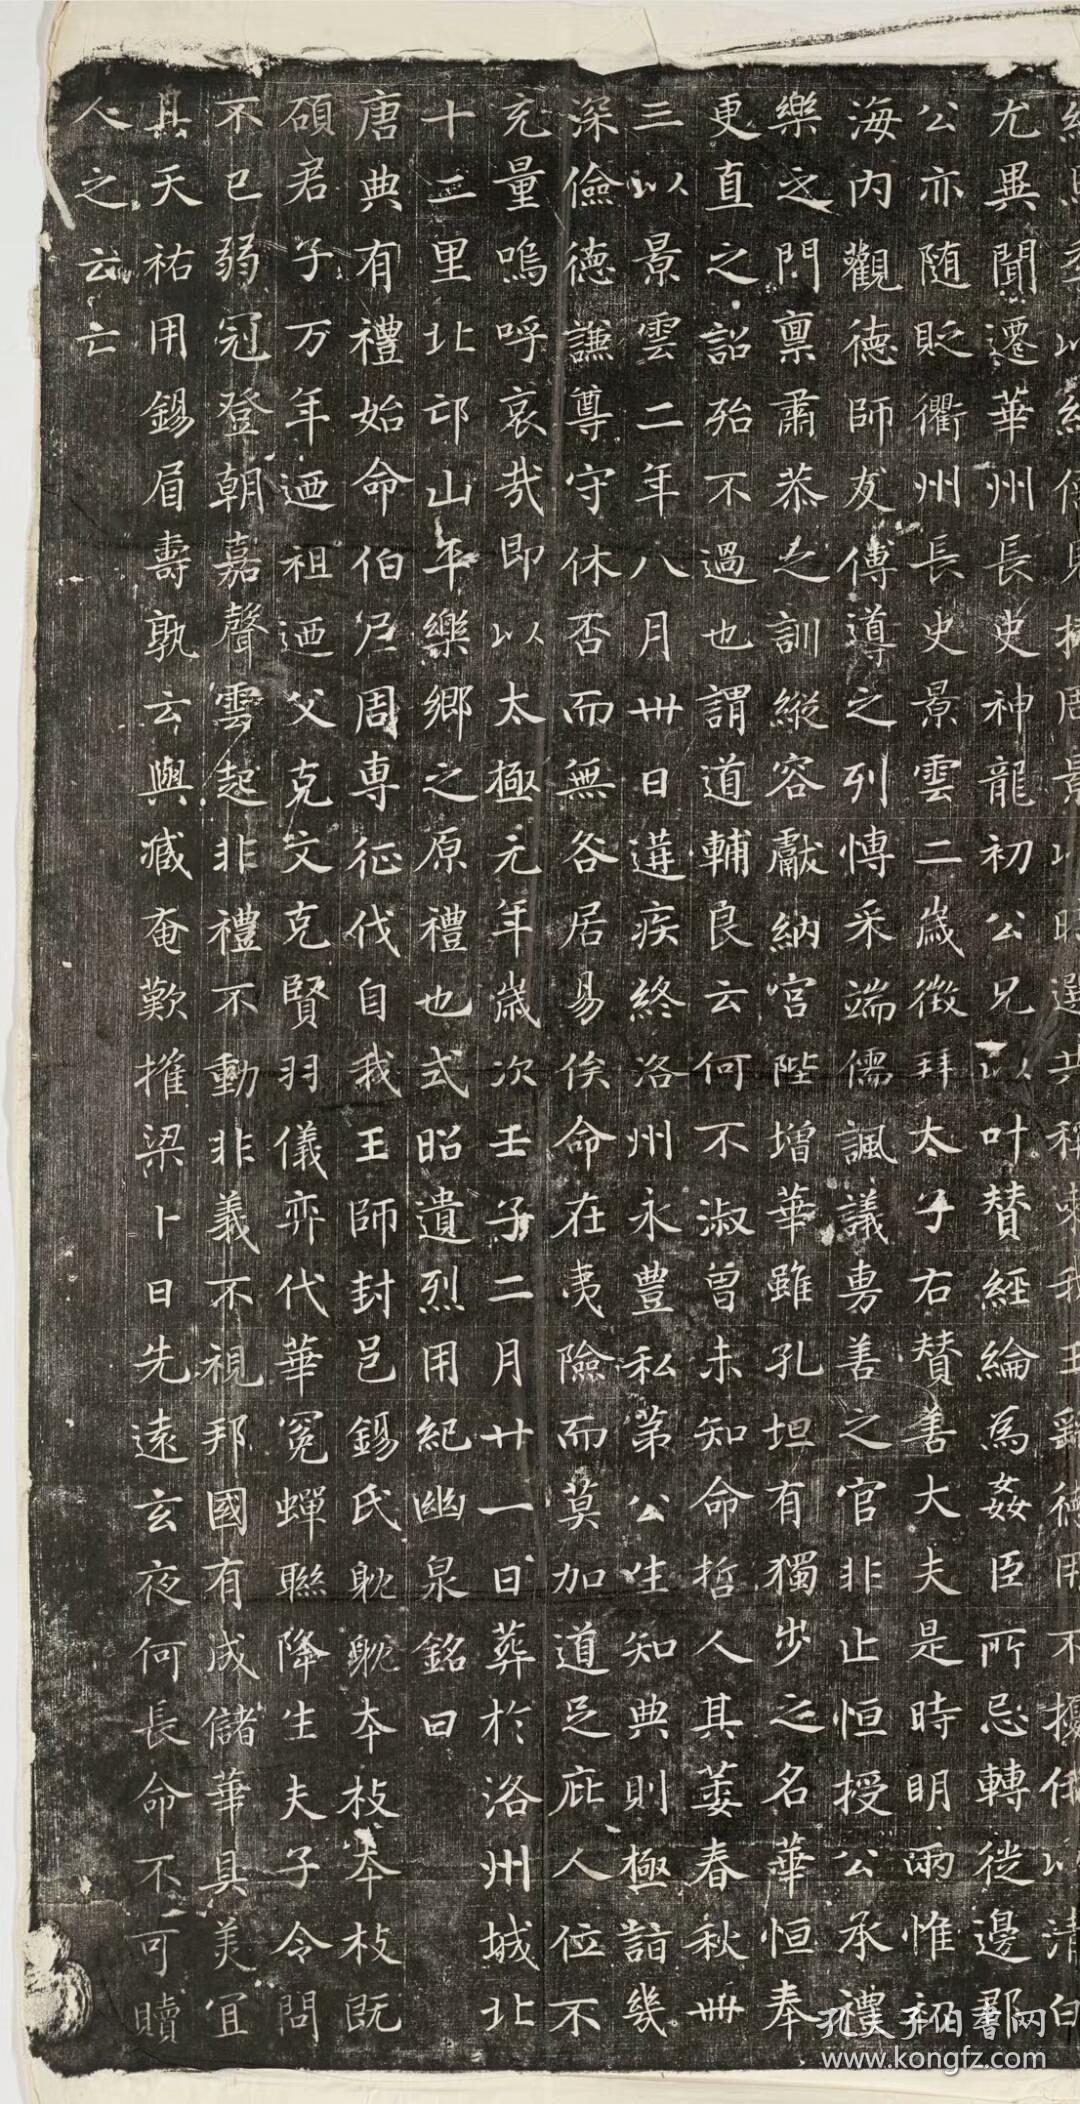 以 經 儒 見 擢 周 景 以 時 選 共 稱 來 我 王 繇 德 用 不 擾 俄 以 清 白
尤異聞遷華州長史神龍初公兄以叶賛經綸為姦臣所忌轉徙邊郡
公亦随貶衢州長史景雲二歲徵拜太子右賛善大夫是時明兩惟初
海内觀德師友傅導之列愽采端儒諷議専善之官非止恒授公承禮
樂之門稟肅恭之訓縱容獻納宮陛增華雖孔坦有獨步之名華恒奉
更直之詔殆不過也謂道輔良云何不淑曾未知命哲人其萎春秋卌
三以景雲二年八月卅日遘疾終洛州永豊私第公生知典則極詣幾
深儉德謙尊守休否而無咎居易俟命在夷險而莫加道足庇人位不
充量嗚呼哀哉即以太極元年歲次壬子二月廿一日葬於洛州城北
十二里北邙山平樂鄉之原禮也式昭遺烈用紀幽泉銘曰
唐典有禮始命伯尼周専征伐自我王師封邑錫氏躭躭夲枝夲枝既
碩君子万年迺祖迺父克文克賢羽儀弈代華冕蟬聯降生夫子令問
不已弱冠登朝嘉聲雲起非禮不動非義不視邦國有成儲華具美宜
其天祐用錫眉壽孰云與臧奄歎摧梁卜日先遠玄夜何長命不可贖
人之云亡
孔夫子旧书网
www.kongfz.com